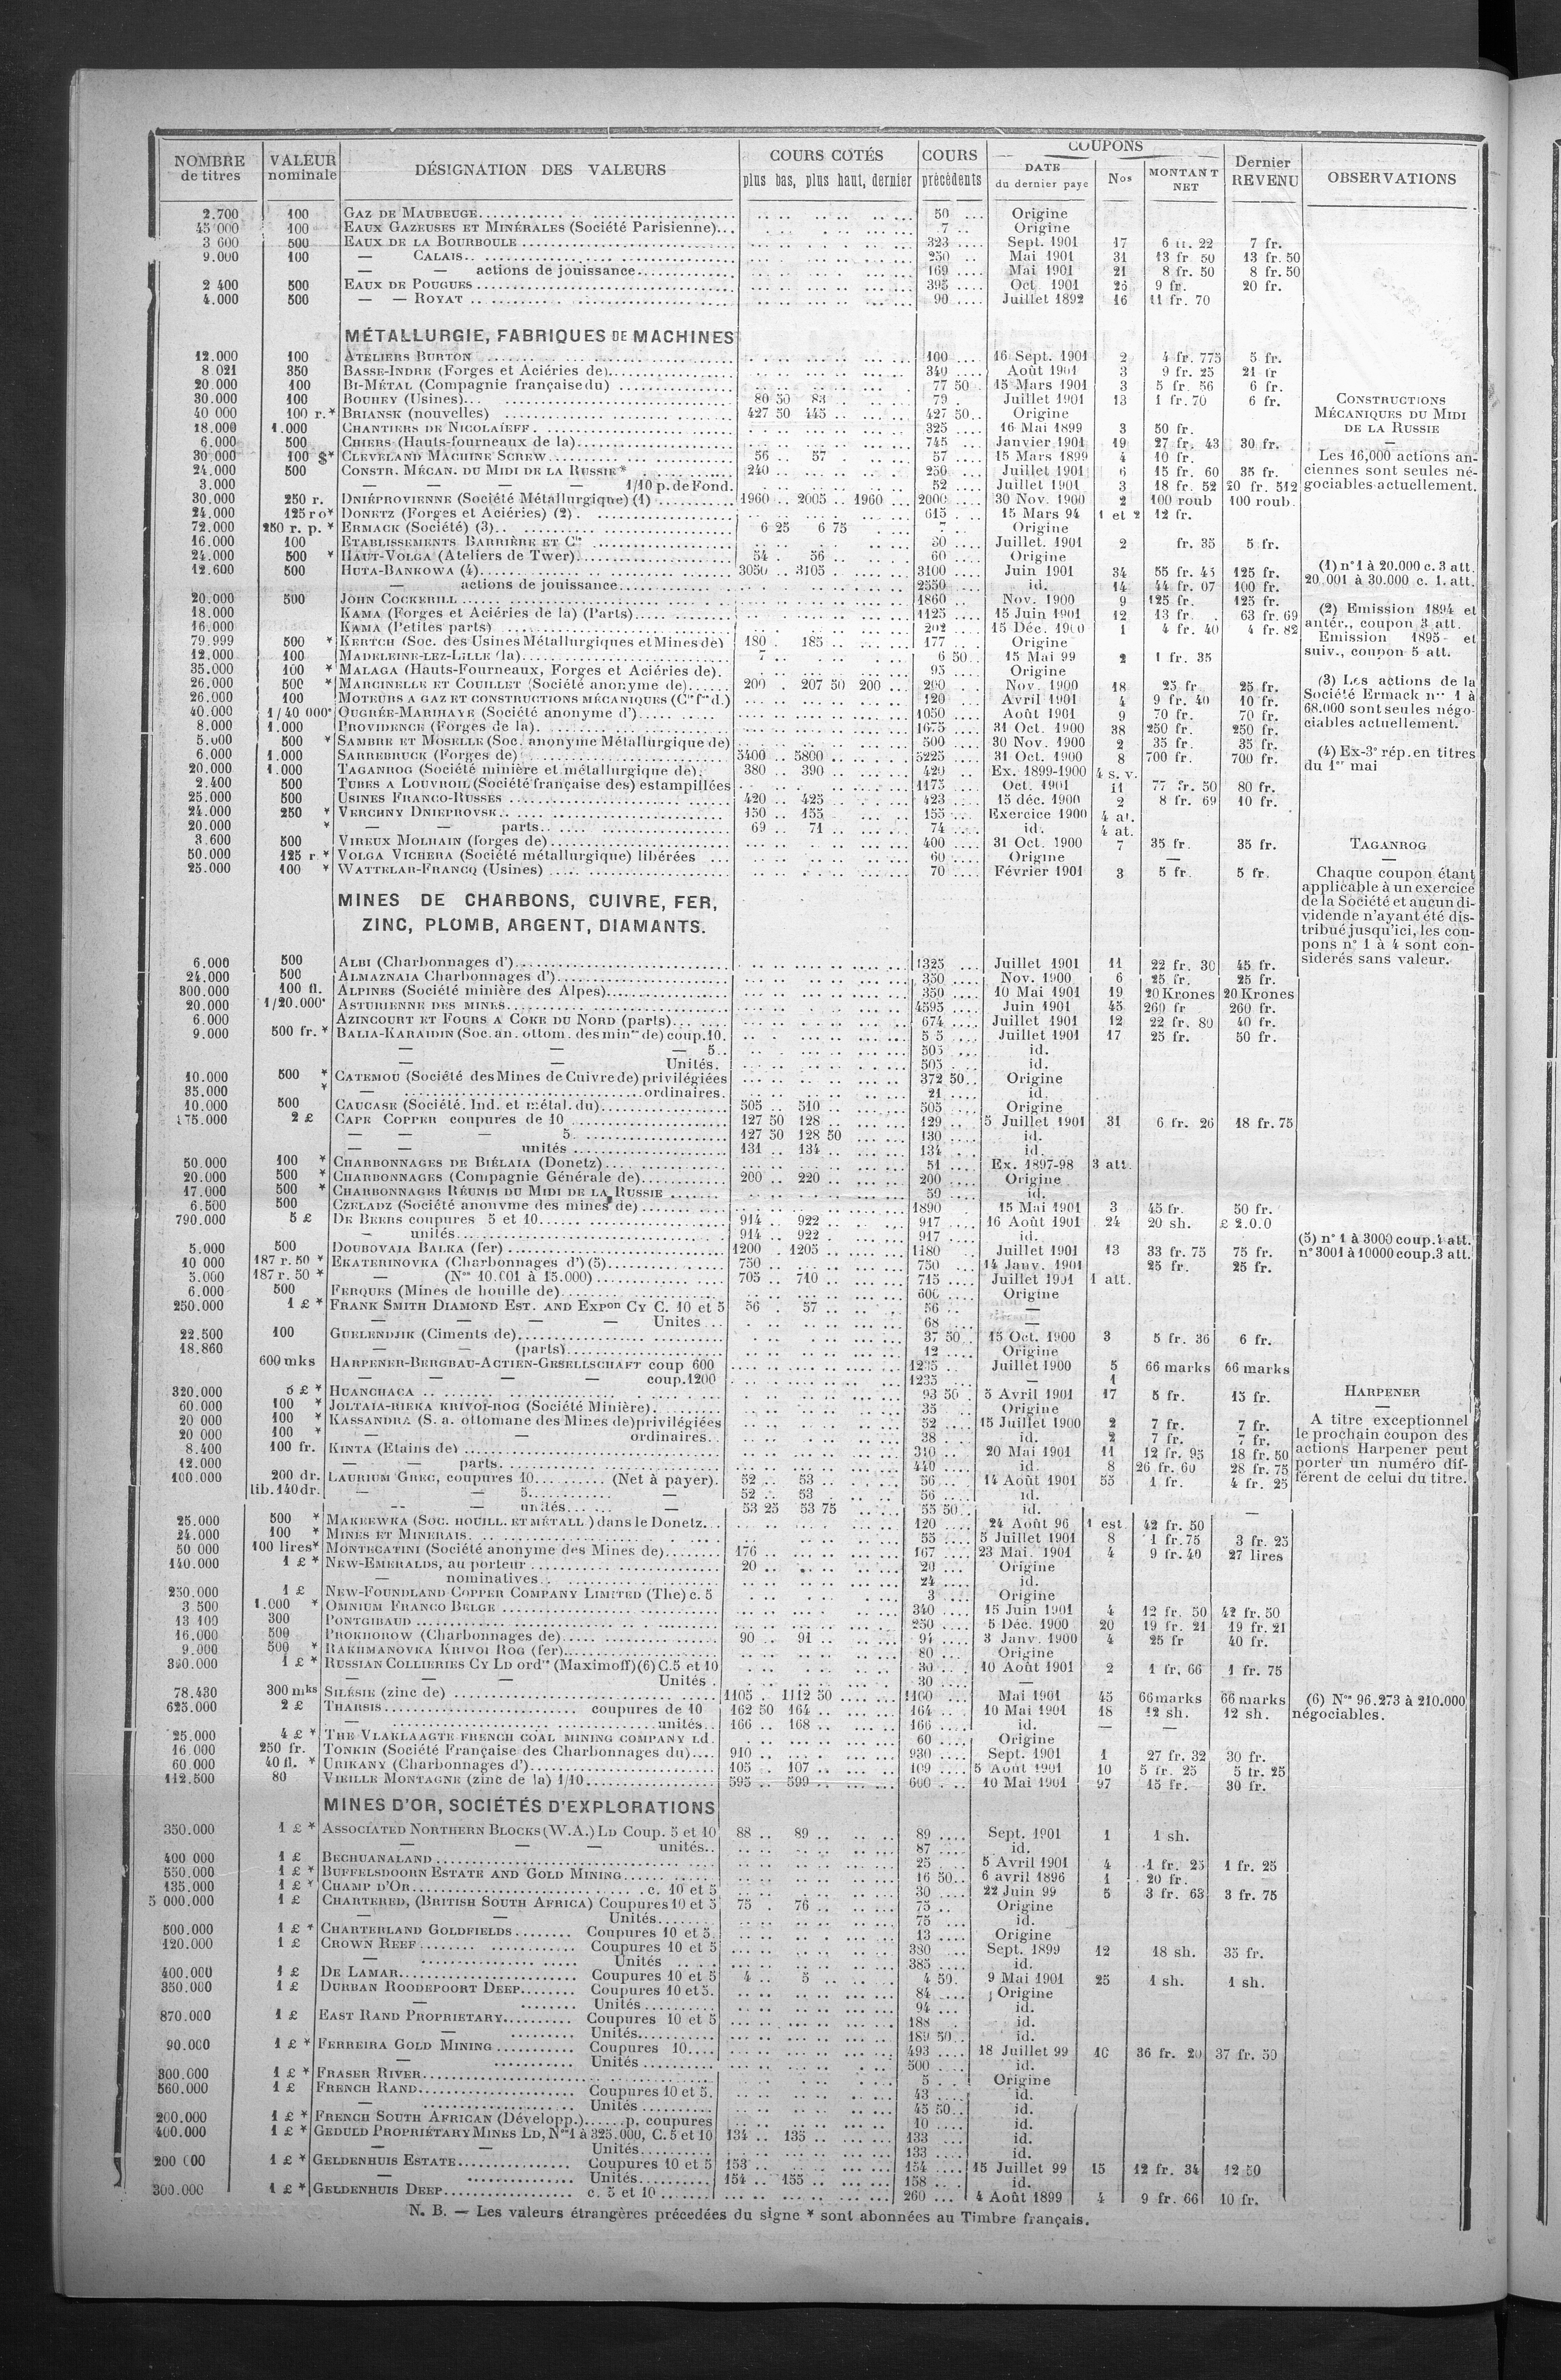 NOMBRE de titres | VALEUR nominale | DÉSIGNATION DES VALEURS | COURS COTÉS plus bas, plus haut, dernier | COURS précédents | COUPONS DATE du dernier payé | Nos | MONTANT NET | Dernier REVENU | OBSERVATIONS
2.700 100 GAZ DE MAUBEUGE 50 Origine
45 000 100 EAUX GAZEUSES ET MINÉRALES (Société Parisienne) 7 Origine
3 600 500 EAUX DE LA BOURBOULE 323 Sept. 1901 17 6 fr. 22 7 fr.
9.000 100 — CALAIS 250 Mai 1901 31 13 fr. 50 13 fr. 50
— — actions de jouissance 169 Mai 1901 21 8 fr. 50 8 fr. 50
2 400 500 EAUX DE POUGUES 395 Oct. 1901 26 9 fr. 20 fr.
4.000 500 — — ROYAT 90 Juillet 1892 16 11 fr. 70
MÉTALLURGIE, FABRIQUES DE MACHINES
12.000 100 ATELIERS BURTON 100 16 Sept. 1901 2 4 fr. 775 5 fr.
8 021 350 BASSE-INDRE (Forges et Aciéries de) 340 Août 1901 3 9 fr. 25 21 fr
20.000 100 BI-MÉTAL (Compagnie française du) 77 50 15 Mars 1901 3 5 fr. 56 6 fr.
30.000 100 BOUHEY (Usines) 80 50 83 79 Juillet 1901 13 1 fr. 70 6 fr.
40 000 100 r. * BRIANSK (nouvelles) 427 50 445 427 50 Origine
18.000 1.000 CHANTIERS DE NICOLAÏEFF 325 16 Mai 1899 3 50 fr.
6.000 500 CHIERS (Hauts-fourneaux de la) 745 Janvier 1901 19 27 fr. 43 30 fr.
30 000 100 $* CLEVELAND MACHINE SCREW 56 57 57 15 Mars 1899 4 10 fr.
24.000 500 CONSTR. MÉCAN. DU MIDI DE LA RUSSIE * 240 250 Juillet 1901 6 15 fr. 60 35 fr.
3.000 — — — — 1/10 p. de Fond. 52 Juillet 1901 3 18 fr. 52 20 fr. 512
30.000 250 r. DNIÉPROVIENNE (Société Métallurgique) (1) 1960 2005 1960 2000 30 Nov. 1900 2 100 roub 100 roub.
24.000 125 ro* DONETZ (Forges et Aciéries) (2) 615 15 Mars 94 1 et 2 12 fr.
72.000 250 r. p. * ERMACK (Société) (3) 6 25 6 75 7 Origine
16.000 100 ETABLISSEMENTS BARRIÈRE ET Cie 80 Juillet. 1901 2 fr. 35 5 fr.
24.000 500 * HAUT-VOLGA (Ateliers de Twer) 54 56 60 Origine
12.600 500 HUTA-BANKOWA (4) 3050 3105 3100 Juin 1901 34 55 fr. 45 125 fr.
— actions de jouissance 2550 id. 14 44 fr. 07 100 fr.
20.000 500 JOHN COCKERILL 1860 Nov. 1900 9 125 fr. 125 fr.
18.000 KAMA (Forges et Aciéries de la) (Parts) 1125 15 Juin 1901 12 13 fr. 63 fr. 69
16.000 KAMA (Petites parts) 202 15 Déc. 1900 1 4 fr. 40 4 fr. 82
79.999 500 * KERTCH (Soc. des Usines Métallurgiques et Mines de) 180 185 177 Origine
12.000 100 MADELEINE-LEZ-LILLE (la) 7 6 50 15 Mai 99 2 1 fr. 35
35.000 100 * MALAGA (Hauts-Fourneaux, Forges et Aciéries de) 95 Origine
26.000 500 * MARCINELLE ET COUILLET (Société anonyme de) 200 207 50 200 200 Nov. 1900 18 25 fr 25 fr.
26.000 100 MOTEURS A GAZ ET CONSTRUCTIONS MÉCANIQUES (Cie fse d.) 120 Avril 1901 4 9 fr. 40 10 fr.
40.000 1/40 000e OUGRÉE-MARIHAYE (Société anonyme d') 1050 Août 1901 9 70 fr. 70 fr.
8.000 1.000 PROVIDENCE (Forges de la) 1675 31 Oct. 1900 38 250 fr. 250 fr.
5.000 500 * SAMBRE ET MOSELLE (Soc. anonyme Métallurgique de) 500 30 Nov. 1900 2 35 fr. 35 fr.
6.000 1.000 SARREBRUCK (Forges de) 5400 5800 5225 31 Oct. 1900 8 700 fr. 700 fr.
20.000 1.000 TAGANROG (Société minière et métallurgique de) 380 390 420 Ex. 1899-1900 4 s. v.
2.400 500 TUBES A LOUVROIL (Société française des) estampillées 1175 Oct. 1901 11 77 fr. 50 80 fr.
25.000 500 USINES FRANCO-RUSSES 420 425 423 15 déc. 1900 2 8 fr. 69 10 fr.
24.000 250 * VERCHNY DNIEPROVSK 150 155 155 Exercice 1900 4 at.
20.000 * — — parts 69 71 74 id. 4 at.
3.600 500 VIREUX MOLHAIN (forges de) 400 31 Oct. 1900 7 35 fr. 35 fr.
50.000 125 r * VOLGA VICHERA (Société métallurgique) libérées 60 Origine —
25.000 100 * WATTELAR-FRANCQ (Usines) 70 Février 1901 3 5 fr. 5 fr.
MINES DE CHARBONS, CUIVRE, FER,
ZINC, PLOMB, ARGENT, DIAMANTS.
6.000 500 ALBI (Charbonnages d') 1325 Juillet 1901 11 22 fr. 30 45 fr.
24.000 500 ALMAZNAIA Charbonnages d') 350 Nov. 1900 6 25 fr. 25 fr.
300.000 100 fl. ALPINES (Société minière des Alpes) 350 10 Mai 1901 19 20 Krones 20 Krones
20.000 1/20.000e ASTURIENNE DES MINES 4595 Juin 1901 45 260 fr 260 fr.
6.000 AZINCOURT ET FOURS A COKE DU NORD (parts) 674 Juillet 1901 12 22 fr. 80 40 fr.
9.000 500 fr. * BALIA-KARAIDIN (Soc. an. ottom. des mines de) coup. 10. 5 5 Juillet 1901 17 25 fr. 50 fr.
— — — 5 505 id.
— — Unités. 505 id.
10.000 500 * CATEMOU (Société des Mines de Cuivre de) privilégiées 372 50 Origine
35.000 * — ordinaires. 21 id.
10.000 500 CAUCASE (Société. Ind. et métal. du) 505 510 505 Origine
175.000 2 £ CAPE COPPER coupures de 10 127 50 128 129 5 Juillet 1901 31 6 fr. 26 18 fr. 75
— — — 5 127 50 128 50 130 id.
— — unités 131 134 134 id.
50.000 100 * CHARBONNAGES DE BIÉLAIA (Donetz) 51 Ex. 1897-98 3 att.
20.000 500 * CHARBONNAGES (Compagnie Générale de) 200 220 200 Origine
17.000 500 * CHARBONNAGES RÉUNIS DU MIDI DE LA RUSSIE 59 id.
6.500 500 CZELADZ (Société anonyme des mines de) 1890 15 Mai 1901 3 45 fr. 50 fr.
790.000 5 £ DE BEERS coupures 5 et 10 914 922 917 16 Août 1901 24 20 sh. £ 2.0.0
— unités 914 922 917 id.
5.000 500 DOUBOVAIA BALKA (fer) 1200 1205 1180 Juillet 1901 13 33 fr. 75 75 fr.
10 000 187 r. 50 * EKATERINOVKA (Charbonnages d') (5) 750 750 14 Janv. 1901 25 fr. 25 fr.
5.000 187 r. 50 * — (Nos 10.001 à 15.000) 705 710 715 Juillet 1901 1 att.
6.000 500 FERQUES (Mines de houille de) 600 Origine
250.000 1 £ * FRANK SMITH DIAMOND EST. AND EXPon CY C. 10 et 5 56 57 56 —
— — — — Unites 68 —
22.500 100 GUELENDJIK (Ciments de) 37 50 15 Oct. 1900 3 5 fr. 36 6 fr.
18.860 — — (parts) 12 Origine
600 mks HARPENER-BERGBAU-ACTIEN-GESELLSCHAFT coup 600 1235 Juillet 1900 5 66 marks 66 marks
— — — — coup. 1200 1235 — 1
320.000 5 £ * HUANCHACA 93 50 5 Avril 1901 17 5 fr. 15 fr.
60.000 100 * JOLTAIA-RIEKA KRIVOÏ-ROG (Société Minière) 35 Origine
20 000 100 * KASSANDRA (S. a. ottomane des Mines de) privilégiées 52 15 Juillet 1900 2 7 fr. 7 fr.
20 000 100 * — — ordinaires 38 id. 2 7 fr. 7 fr.
8.400 100 fr. KINTA (Etains de) 310 20 Mai 1901 11 12 fr. 95 18 fr. 50
12.000 — — parts 440 id. 8 26 fr. 60 28 fr. 75
100.000 200 dr. LAURIUM GREC, coupures 10 (Net à payer) 52 53 56 14 Août 1901 55 1 fr. 4 fr. 25
lib. 140 dr. — — 5 — 52 53 56 id.
— — unités — 53 25 53 75 55 50 id. —
25.000 500 * MAKEEWKA (SOC. HOUILL. ET MÉTALL.) dans le Donetz 120 24 Août 96 1 est 42 fr. 50
24.000 100 * MINES ET MINERAIS 55 5 Juillet 1901 8 1 fr. 75 3 fr. 25
50 000 100 lires* MONTECATINI (Société anonyme des Mines de) 176 167 23 Mai. 1901 4 9 fr. 40 27 lires
140.000 1 £ * NEW-EMERALDS, au porteur 20 20 Origine
— nominatives 24 id.
250.000 1 £ NEW-FOUNDLAND COPPER COMPANY LIMITED (The) c. 5 3 Origine
3.500 1.000 * OMNIUM FRANCO BELGE 340 15 Juin 1901 4 12 fr. 50 42 fr. 50
13 100 300 PONTGIBAUD 250 5 Déc. 1900 20 19 fr. 21 19 fr. 21
16.000 500 PROKHOROW (Charbonnages de) 90 91 94 3 Janv. 1900 4 25 fr 40 fr.
9.000 500 * RAKHMANOVKA KRIVOI ROG (fer) 80 Origine
1 £ * RUSSIAN COLLIERIES CY LD ordres (Maximoff) (6) C. 5 et 10 30 10 Août 1901 2 1 fr. 66 1 fr. 75
— — — Unités 30 —
78.430 300 mks SILÉSIE (zinc de) 1105 1112 50 1100 Mai 1901 45 66 marks 66 marks
625.000 2 £ THARSIS coupures de 10 162 50 164 164 10 Mai 1901 18 12 sh. 12 sh.
— unités 166 168 166 id. — —
25.000 4 £ * THE VLAKLAAGTE FRENCH COAL MINING COMPANY Ld. 60 Origine
16.000 250 fr. TONKIN (Société Française des Charbonnages du) 910 930 Sept. 1901 1 27 fr. 32 30 fr.
60 000 40 fl. * URIKANY (Charbonnages d') 105 107 109 5 Août 1901 10 5 fr. 25 5 fr. 25
112.500 80 VIEILLE MONTAGNE (zinc de la) 1/10 595 599 600 10 Mai 1901 97 15 fr. 30 fr.
MINES D'OR, SOCIÉTÉS D'EXPLORATIONS
350.000 1 £ * ASSOCIATED NORTHERN BLOCKS (W.A.) LD Coup. 5 et 10 88 89 89 Sept. 1901 1 1 sh.
— — — unités 87 id.
400 000 1 £ BECHUANALAND 25 5 Avril 1901 4 1 fr. 25 1 fr. 25
550.000 1 £ * BUFFELSDOORN ESTATE AND GOLD MINING 16 50 6 avril 1896 1 20 fr.
135.000 1 £ * CHAMP D'OR c. 10 et 5 30 22 Juin 99 5 3 fr. 63 3 fr. 75
5 000.000 1 £ CHARTERED, (BRITISH SOUTH AFRICA) Coupures 10 et 5 75 76 75 Origine
— — Unités 75 id.
500.000 1 £ * CHARTERLAND GOLDFIELDS Coupures 10 et 5 13 Origine
120.000 1 £ CROWN REEF Coupures 10 et 5 380 Sept. 1899 12 18 sh. 35 fr.
— Unités 385 id.
400.000 1 £ DE LAMAR Coupures 10 et 5 4 5 4 50 9 Mai 1901 25 1 sh. 1 sh.
350.000 1 £ DURBAN ROODEPOORT DEEP Coupures 10 et 5 84 Origine
— Unités 94 id.
870.000 1 £ EAST RAND PROPRIETARY Coupures 10 et 5 188 id.
— Unités 189 50 id.
90.000 1 £ * FERREIRA GOLD MINING Coupures 10 493 18 Juillet 99 10 36 fr. 20 37 fr. 50
— Unités 500 id.
300.000 1 £ * FRASER RIVER 5 Origine
560.000 1 £ FRENCH RAND Coupures 10 et 5. 43 id.
— Unités 45 50 id.
200.000 1 £ * FRENCH SOUTH AFRICAN (Développ.) p. coupures 10 id.
400.000 1 £ * GEDULD PROPRIÉTARY MINES LD, Nos 1 à 325.000, C. 5 et 10 134 135 133 id.
— — Unités 133 id.
200 000 1 £ * GELDENHUIS ESTATE Coupures 10 et 5 153 154 15 Juillet 99 15 12 fr. 34 12.50
— Unités 154 155 158 id.
300.000 1 £ * GELDENHUIS DEEP c. 5 et 10 260 4 Août 1899 4 9 fr. 66 10 fr.
N. B. — Les valeurs étrangères précedées du signe * sont abonnées au Timbre français.
CONSTRUCTIONS
MÉCANIQUES DU MIDI
DE LA RUSSIE
—
Les 16,000 actions an-
ciennes sont seules né-
gociables actuellement.
(1) n° 1 à 20.000 c. 3 att.
20.001 à 30.000 c. 1. att.
(2) Emission 1894 et
antér., coupon 3 att.
Emission 1895 et
suiv., coupon 5 att.
(3) Les actions de la
Société Ermack nos 1 à
68.000 sont seules négo-
ciables actuellement.
(4) Ex-3e rép. en titres
du 1er mai
TAGANROG
—
Chaque coupon étant
applicable à un exercice
de la Société et aucun di-
vidende n'ayant été dis-
tribué jusqu'ici, les cou-
pons n° 1 à 4 sont con-
siderés sans valeur.
(5) n° 1 à 3000 coup. 4 att.
n° 3001 à 10000 coup. 3 att.
HARPENER
—
A titre exceptionnel
le prochain coupon des
actions Harpener peut
porter un numéro dif-
férent de celui du titre.
(6) Nos 96.273 à 210.000
négociables.